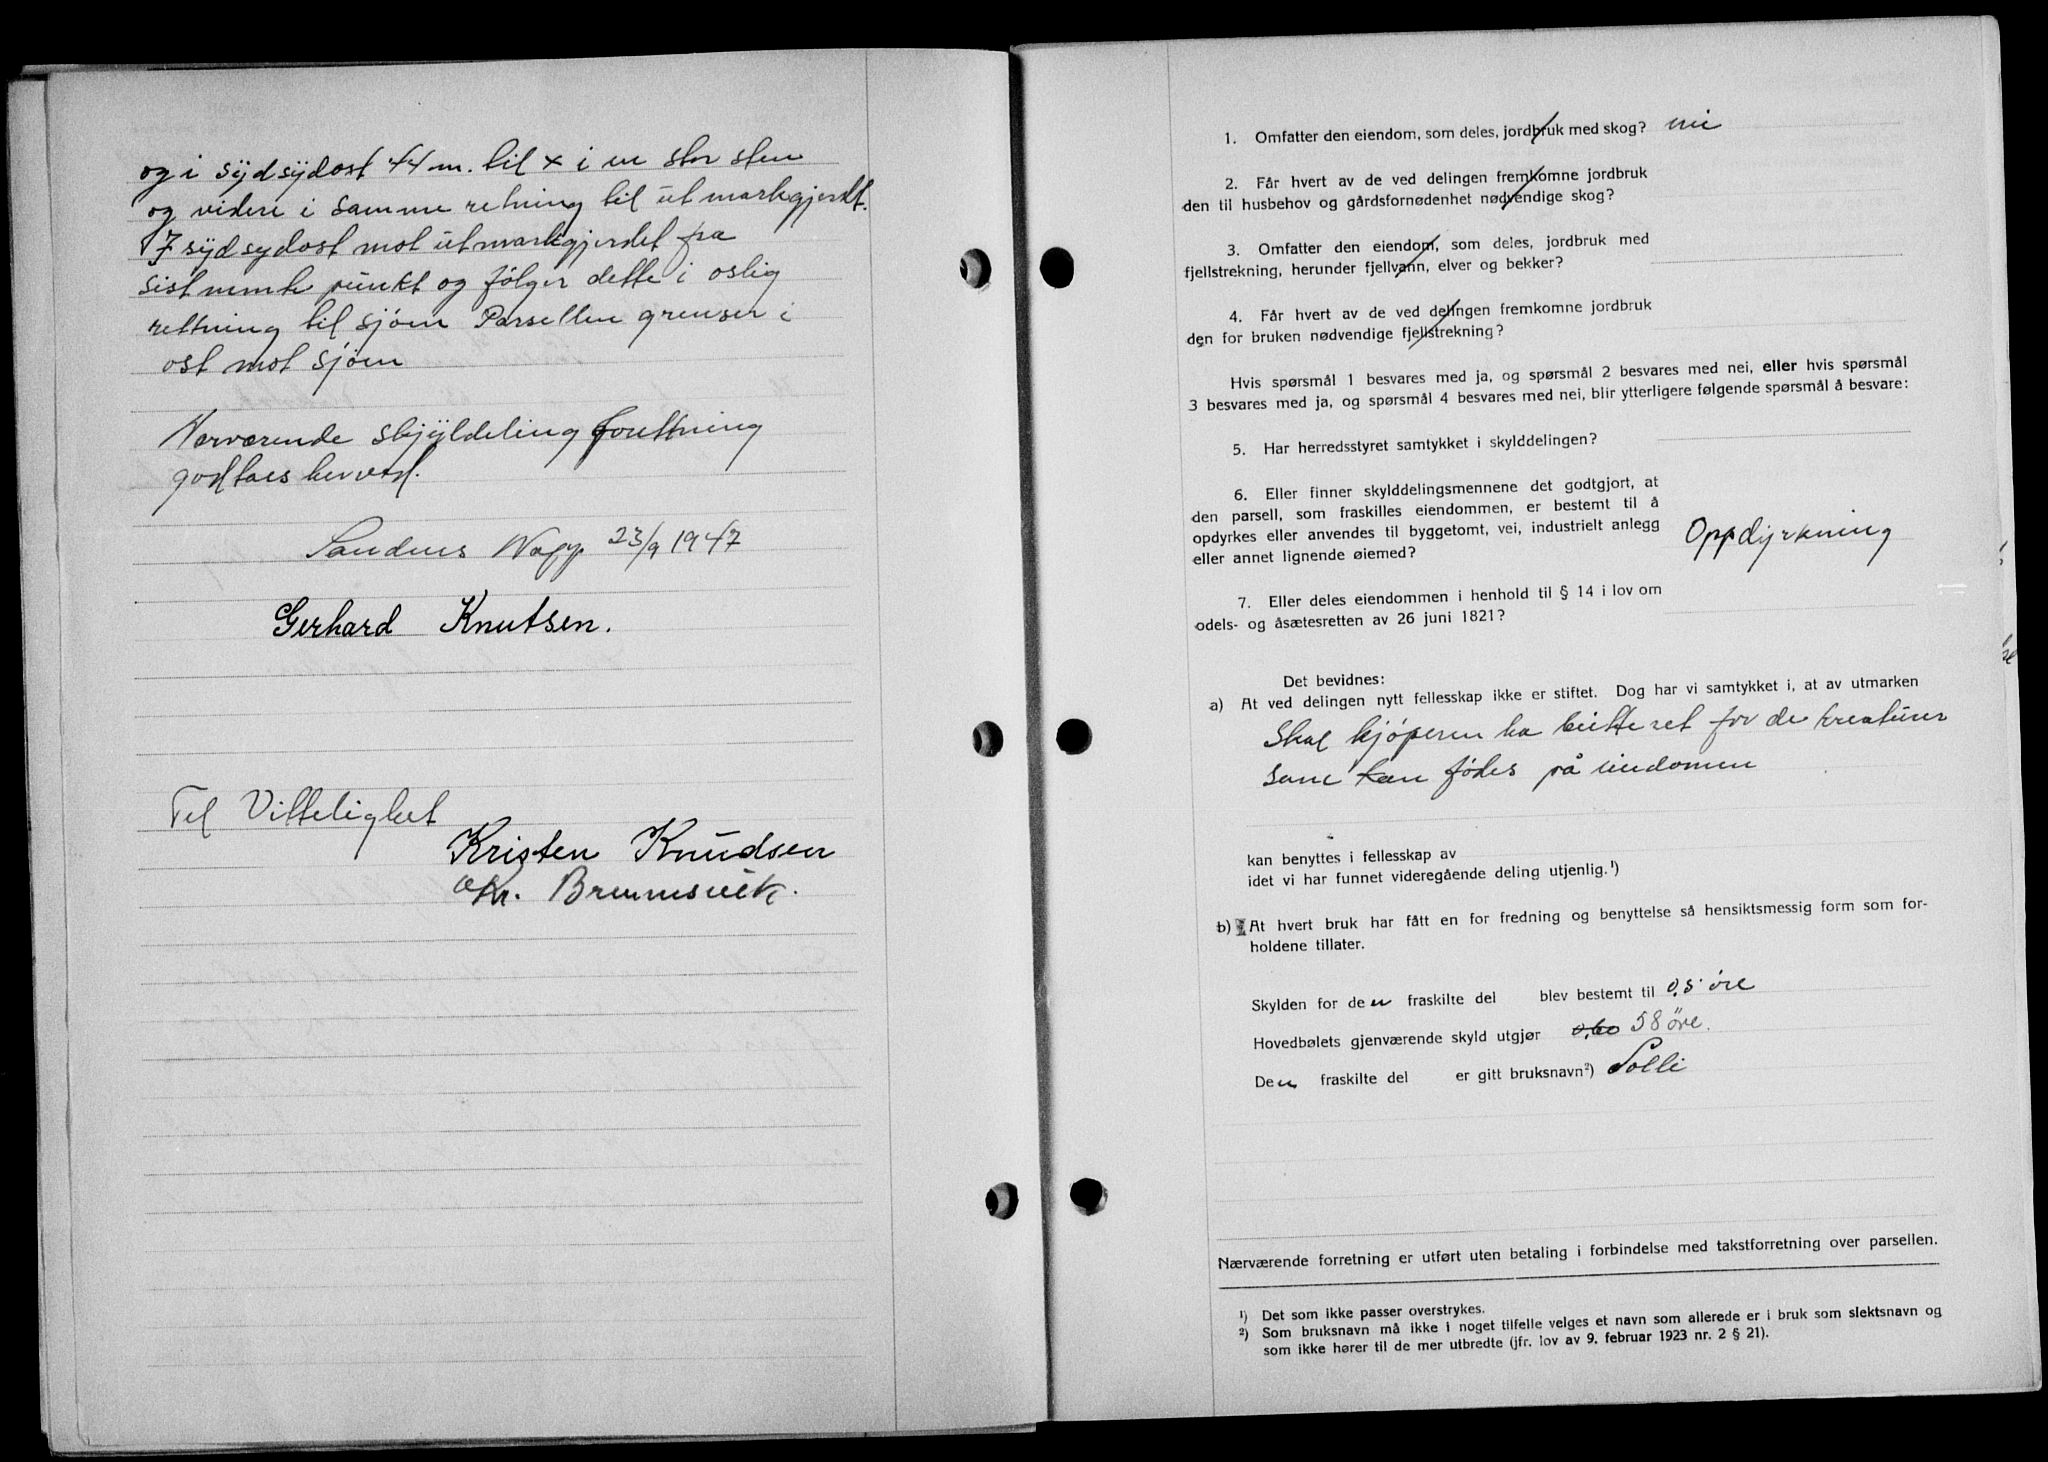 og i sydsydost 44 m. til x i en stor sten
og videre i samme retning til utmarkgjerdet.
I sydsydost mot utmarkgjerdet fra
sist nemte punkt og følger dette i ostlig
rettning til sjøen Parsellen grenser i
ost mot sjøen
Nærværende skylddeling forettning
godtaes herved.
Sandnes 23/9 1947
Gerhard Knutsen.
Til Vitterlighet
Kristen Knudsen
Chr. Brunsvik.
1. Omfatter den eiendom, som deles, jordbruk med skog? nei
2. Får hvert av de ved delingen fremkomne jordbruk
den til husbehov og gårdsfornødenhet nødvendige skog?
3. Omfatter den eiendom, som deles, jordbruk med
fjellstrekning, herunder fjellvann, elver og bekker?
4. Får hvert av de ved delingen fremkomne jordbruk
den for bruken nødvendige fjellstrekning?
Hvis spørsmål 1 besvares med ja, og spørsmål 2 besvares med nei, eller hvis spørsmål
3 besvares med ja, og spørsmål 4 besvares med nei, blir ytterligere følgende spørsmål å besvare:
5. Har herredsstyret samtykket i skylddelingen?
6. Eller finner skylddelingsmennene det godtgjort, at
den parsell, som fraskilles eiendommen, er bestemt til å
opdyrkes eller anvendes til byggetomt, vei, industrielt anlegg
eller annet lignende øiemed? Oppdyrkning
7. Eller deles eiendommen i henhold til § 14 i lov om
odels- og åsætesretten av 26 juni 1821?
Det bevidnes:
a) At ved delingen nytt fellesskap ikke er stiftet. Dog har vi samtykket i, at av utmarken
Skal kjøperen ha beitteret for de kreaturer
som kan fødes på eiendomen
kan benyttes i fellesskap av
idet vi har funnet videregående deling utjenlig.¹)
b) At hvert bruk har fått en for fredning og benyttelse så hensiktsmessig form som for-
holdene tillater.
Skylden for den fraskilte del blev bestemt til 0,5 øre
Hovedbølets gjenværende skyld utgjør 0,60 58 øre.
Den fraskilte del er gitt bruksnavn²) Solli
Nærværende forretning er utført uten betaling i forbindelse med takstforretning over parsellen.
¹) Det som ikke passer overstrykes.
²) Som bruksnavn må ikke i noget tilfelle velges et navn som allerede er i bruk som slektsnavn og
som ikke hører til de mer utbredte (jfr. lov av 9. februar 1923 nr. 2 § 21).